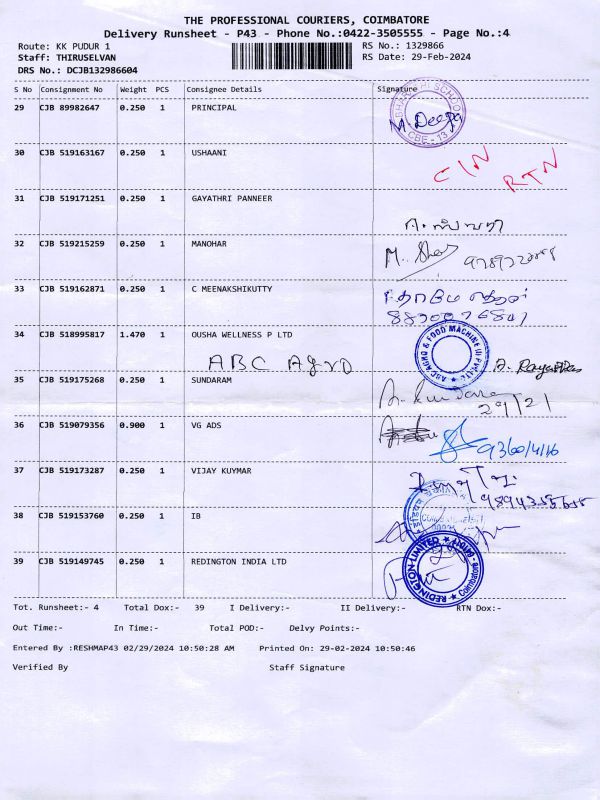 THE PROFESSIONAL COURIERS, COIMBATORE
Delivery Runsheet - P43 - Phone No.:0422-3505555 - Page No.:4
Route: KK PUDUR 1 RS No.: 1329866
Staff: THIRUSELVAN RS Date: 29-Feb-2024
DRS No.: DCJB132986604
S No Consignment No Weight PCS Consignee Details Signature
29 CJB 89982647 0.250 1 PRINCIPAL M. Deepa CBE - 13
30 CJB 519163167 0.250 1 USHAANI RTN
31 CJB 519171251 0.250 1 GAYATHRI PANNEER
32 CJB 519215259 0.250 1 MANOHAR
33 CJB 519162871 0.250 1 C MEENAKSHIKUTTY
34 CJB 518995817 1.470 1 OUSHA WELLNESS P LTD
ABC Agro
35 CJB 519175268 0.250 1 SUNDARAM
29/2
36 CJB 519079356 0.900 1 VG ADS
37 CJB 519173287 0.250 1 VIJAY KUYMAR
38 CJB 519153760 0.250 1 IB
39 CJB 519149745 0.250 1 REDINGTON INDIA LTD REDINGTON LIMITED Coimbatore
Tot. Runsheet:- 4 Total Dox:- 39 I Delivery:- II Delivery:- RTN Dox:-
Out Time:- In Time:- Total POD:- Delvy Points:-
Entered By :RESHMAP43 02/29/2024 10:50:28 AM Printed On: 29-02-2024 10:50:46
Verified By Staff Signature